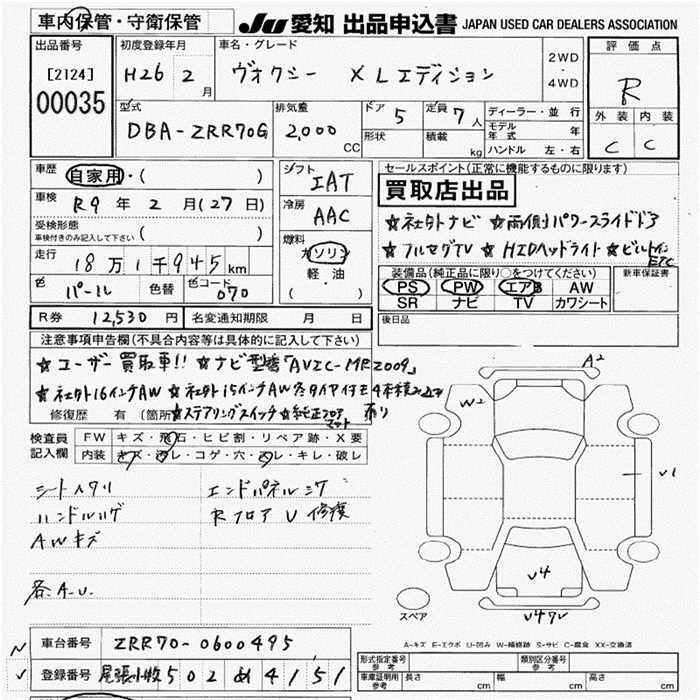 車内保管・守衛保管 JU 愛知 出品申込書 JAPAN USED CAR DEALERS ASSOCIATION
出品番号 初度登録年月 車名・グレード 評価点
[2124] H26 2月 ヴォクシー X Lエディション 2WD・4WD R
00035
型式 排気量 ドア 5 定員 7人 ディーラー・並行 外装 内装
DBA-ZRR70G 2,000 CC 形状 積載 kg モデル年式 年 C C
ハンドル 左・右
車歴 自家用・( ) シフト IAT セールスポイント(正常に機能するものに限ります)
車検 R9年 2月(27日) 冷房 AAC 買取店出品
受検形態 ( ) ☆社外ナビ ☆両側パワースライドドア
車検付きのみ記入して下さい
走行 18万1千945km 燃料 ガソリン ☆フルセグTV ☆HIDヘッドライト ☆ビルトインETC
色 パール 色替 色コード 070 軽・油 ( ) 装備品(純正品に限り○をつけてください) 新車保証書
PS PW エアB AW
SR ナビ TV カワシート
R券 12,530円 名変通知期限 月 日 後日品
注意事項申告欄(不具合内容等は具体的に記入して下さい)
☆ユーザー買取車!! ☆ナビ型番「AVIC-MRZ009」
☆社外16インチAW ☆社外15インチAW冬タイヤ付き4本積み込み
修復歴 有 (箇所 ☆ステアリングスイッチ ☆純正フロアマット 有り
検査員記入欄 FW キズ・飛石・ヒビ割・リペア跡・X要
内装 キズ・汚レ・コゲ・穴・スレ・キレ・破レ
A2
W2
V1
V4
V4
シートスリ エンドパネル
ハンドルハゲ Rフロア U 修復
AWキズ
各A.U.
スペア
A-キズ E-エクボ U-凹み W-補修跡 S-サビ C-腐食 XX-交換済
車台番号 ZRR70-0600495
登録番号 尾張小牧 502 め 4151
形式指定番号 参考 類別区分番号 参考
車庫証明用 参考 長さ cm 幅 cm 高さ cm